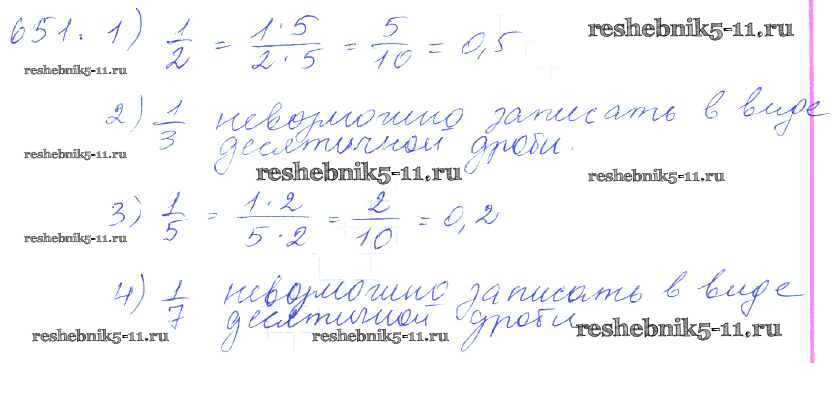 651. 1) 1/2 = 1·5/2·5 = 5/10 = 0,5
reshebnik5-11.ru
reshebnik5-11.ru
2) 1/3 невозможно записать в виде
десятичной дроби.
reshebnik5-11.ru
reshebnik5-11.ru
reshebnik5-11.ru
3) 1/5 = 1·2/5·2 = 2/10 = 0,2
reshebnik5-11.ru
4) 1/7 невозможно записать в виде
десятичной дроби
reshebnik5-11.ru
reshebnik5-11.ru
reshebnik5-11.ru